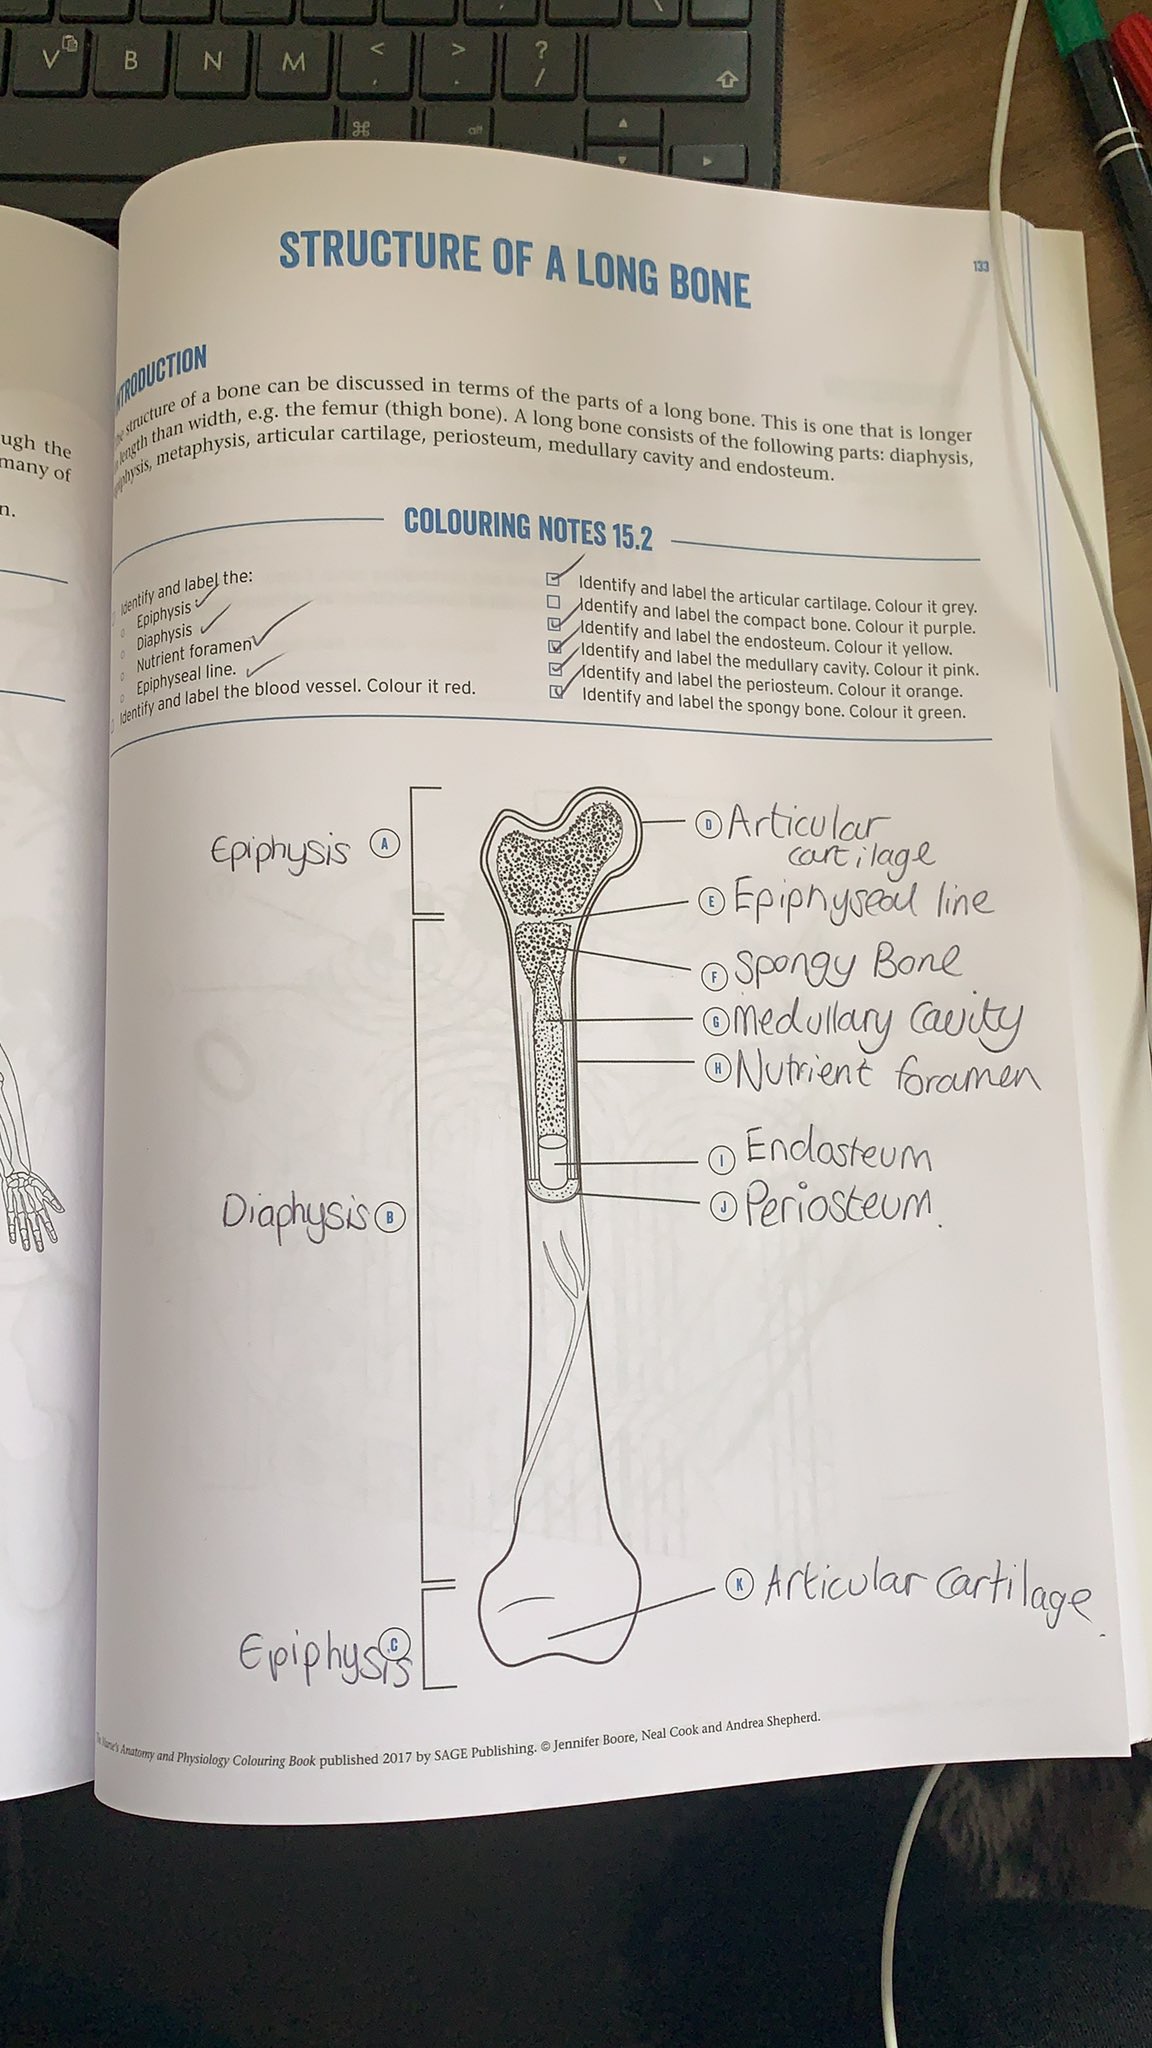 V
B
N
M
<
,
>
.
?
/
⌘
alt
STRUCTURE OF A LONG BONE
133
structure of a bone can be discussed in terms of the parts of a long bone. This is one that is longer
length than width, e.g. the femur (thigh bone). A long bone consists of the following parts: diaphysis,
metaphysis, articular cartilage, periosteum, medullary cavity and endosteum.
ugh the
many of
n.
COLOURING NOTES 15.2
Identify and label the:
Epiphysis
Diaphysis
Nutrient foramen
Epiphyseal line.
Identify and label the blood vessel. Colour it red.
Identify and label the articular cartilage. Colour it grey.
Identify and label the compact bone. Colour it purple.
Identify and label the endosteum. Colour it yellow.
Identify and label the medullary cavity. Colour it pink.
Identify and label the periosteum. Colour it orange.
Identify and label the spongy bone. Colour it green.
Epiphysis A
D Articular
cartilage
E Epiphyseal line
F Spongy Bone
G medullary cavity
H Nutrient foramen
I Endosteum
Diaphysis B
J Periosteum.
K Articular cartilage.
Epiphysis C
Anatomy and Physiology Colouring Book published 2017 by SAGE Publishing. © Jennifer Boore, Neal Cook and Andrea Shepherd.